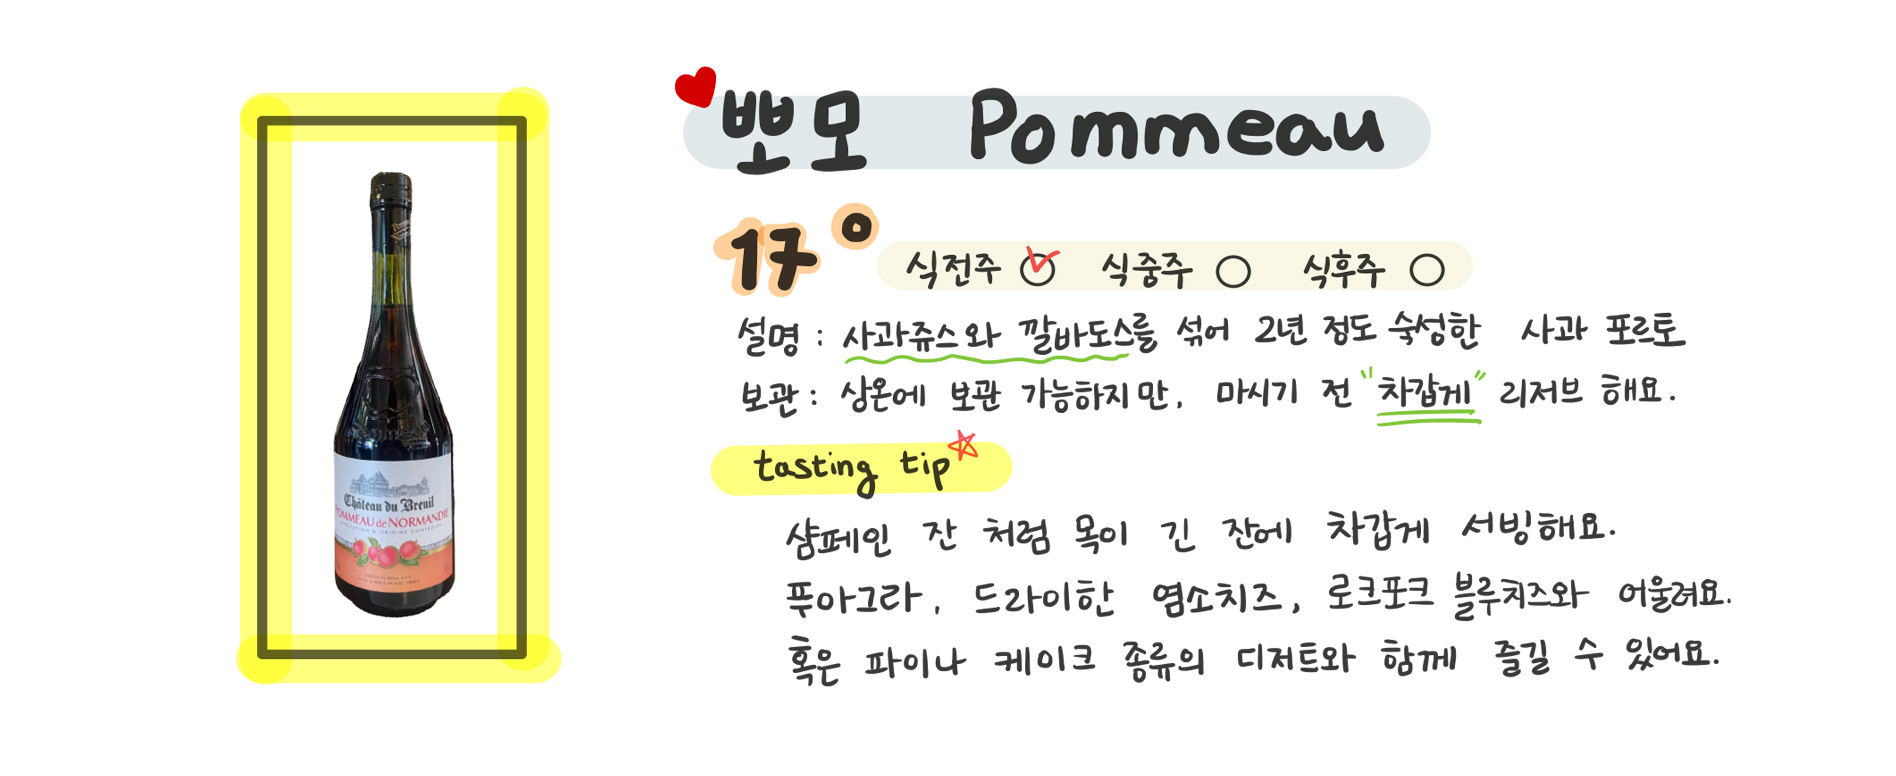 뽀모 Pommeau
17°
식전주 식중주 식후주
설명 : 사과쥬스와 깔바도스를 섞어 2년 정도 숙성한 사과 포르토
보관 : 상온에 보관 가능하지만, 마시기 전 "차갑게" 리저브 해요.
tasting tip
샴페인 잔 처럼 목이 긴 잔에 차갑게 서빙해요.
푸아그라, 드라이한 염소치즈, 로크포크 블루치즈와 어울려요.
혹은 파이나 케이크 종류의 디저트와 함께 즐길 수 있어요.
Château du Breuil
POMMEAU de NORMANDIE
APPELLATION D'ORIGINE CONTROLEE